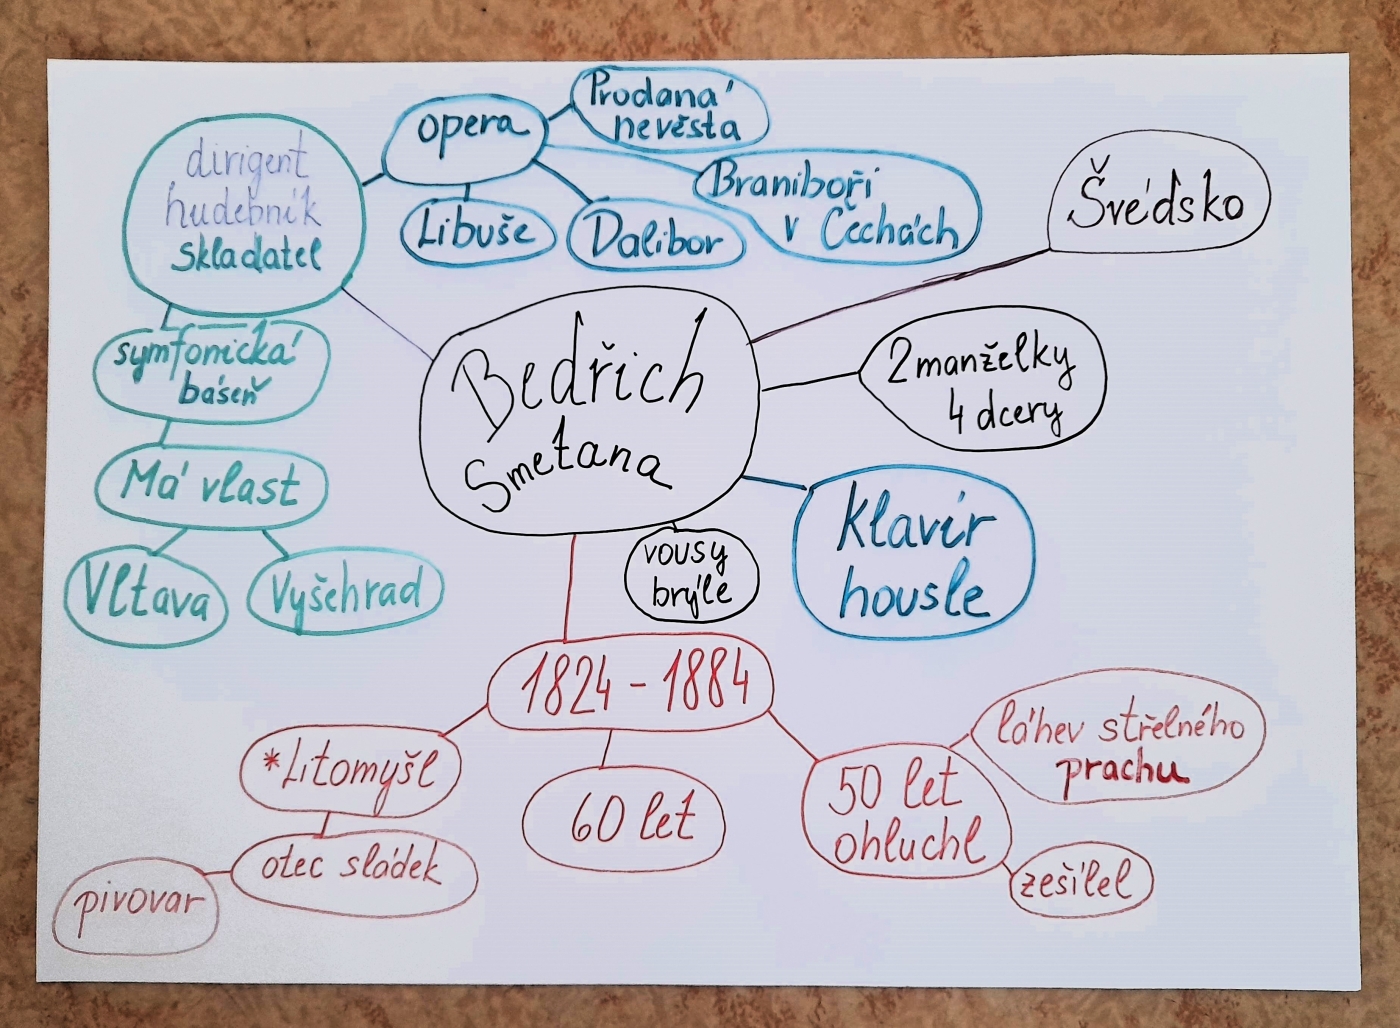 Bedřich
Smetana
dirigent
hudebník
skladatel
opera
Prodaná
nevěsta
Braniboři
v Čechách
Dalibor
Libuše
symfonická
báseň
Má vlast
Vltava
Vyšehrad
Švédsko
2 manželky
4 dcery
klavír
housle
vousy
brýle
1824 - 1884
*Litomyšl
otec sládek
pivovar
60 let
50 let
ohluchl
láhev střelného
prachu
zešílel